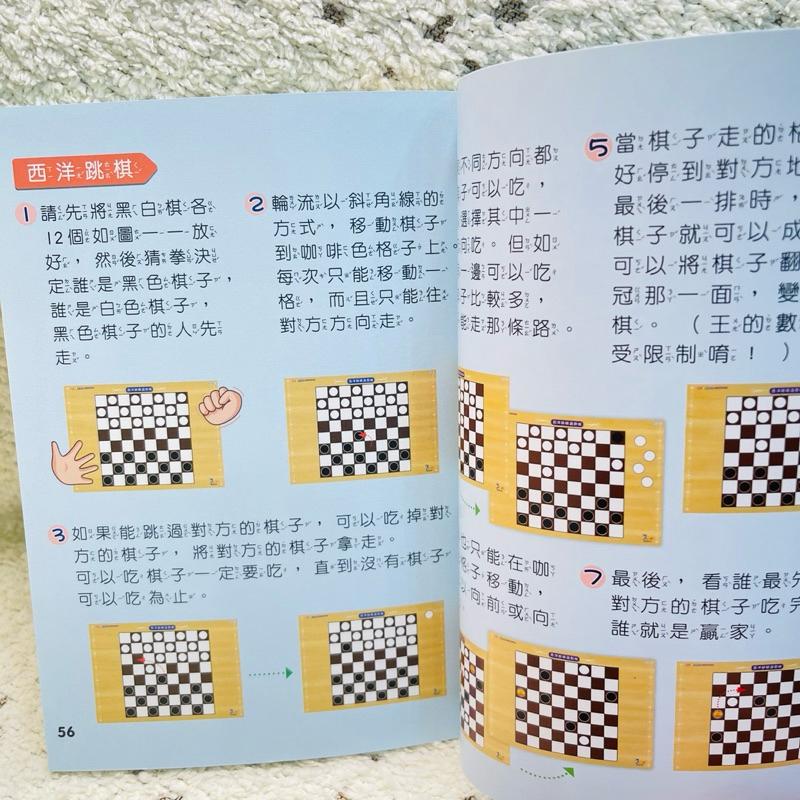 西洋跳棋
1 請先將黑白棋各
12個如圖一一放
好，然後猜拳決
定誰是黑色棋子，
誰是白色棋子，
黑色棋子的人先
走。
2 輪流以斜角線的
方式，移動棋子
到咖啡色格子上。
每次只能移動一
格，而且只能往
對方方向走。
3 如果能跳過對方的棋子，可以吃掉對
方的棋子，將對方的棋子拿走。
可以吃棋子一定要吃，直到沒有棋子
可以吃為止。
56
不同方向都
子可以吃，
選擇其中一
向吃。但如
一邊可以吃
子比較多，
能走那條路。
5 當棋子走的格
好停到對方地
最後一排時，
棋子就可以成
可以將棋子翻
冠那一面，變
棋。（王的數
受限制唷！）
也只能在咖
格子移動，
以向前或向
7 最後，看誰最先
對方的棋子吃完
誰就是贏家。